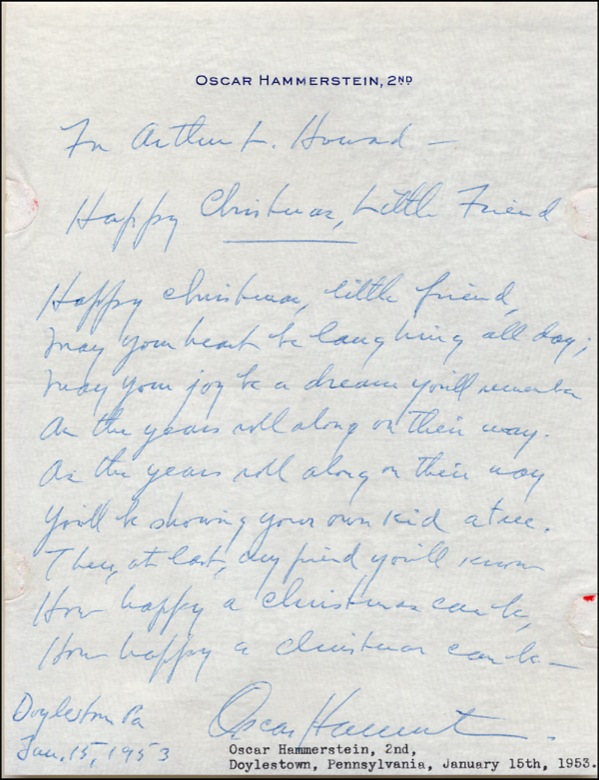 OSCAR HAMMERSTEIN, 2ND
For Arthur L. Howard —
Happy Christmas, Little Friend
Happy christmas, little friend,
May your heart be laughing all day;
May your joy be a dream you'll remember
As the years roll along on their way.
As the years roll along on their way
You'll be showing your own kid a tree.
Then, at last, my friend you'll know
How happy a christmas can be,
How happy a christmas can be —
Doylestown Pa
Jan. 15, 1953
Oscar Hammerstein
Oscar Hammerstein, 2nd,
Doylestown, Pennsylvania, January 15th, 1953.